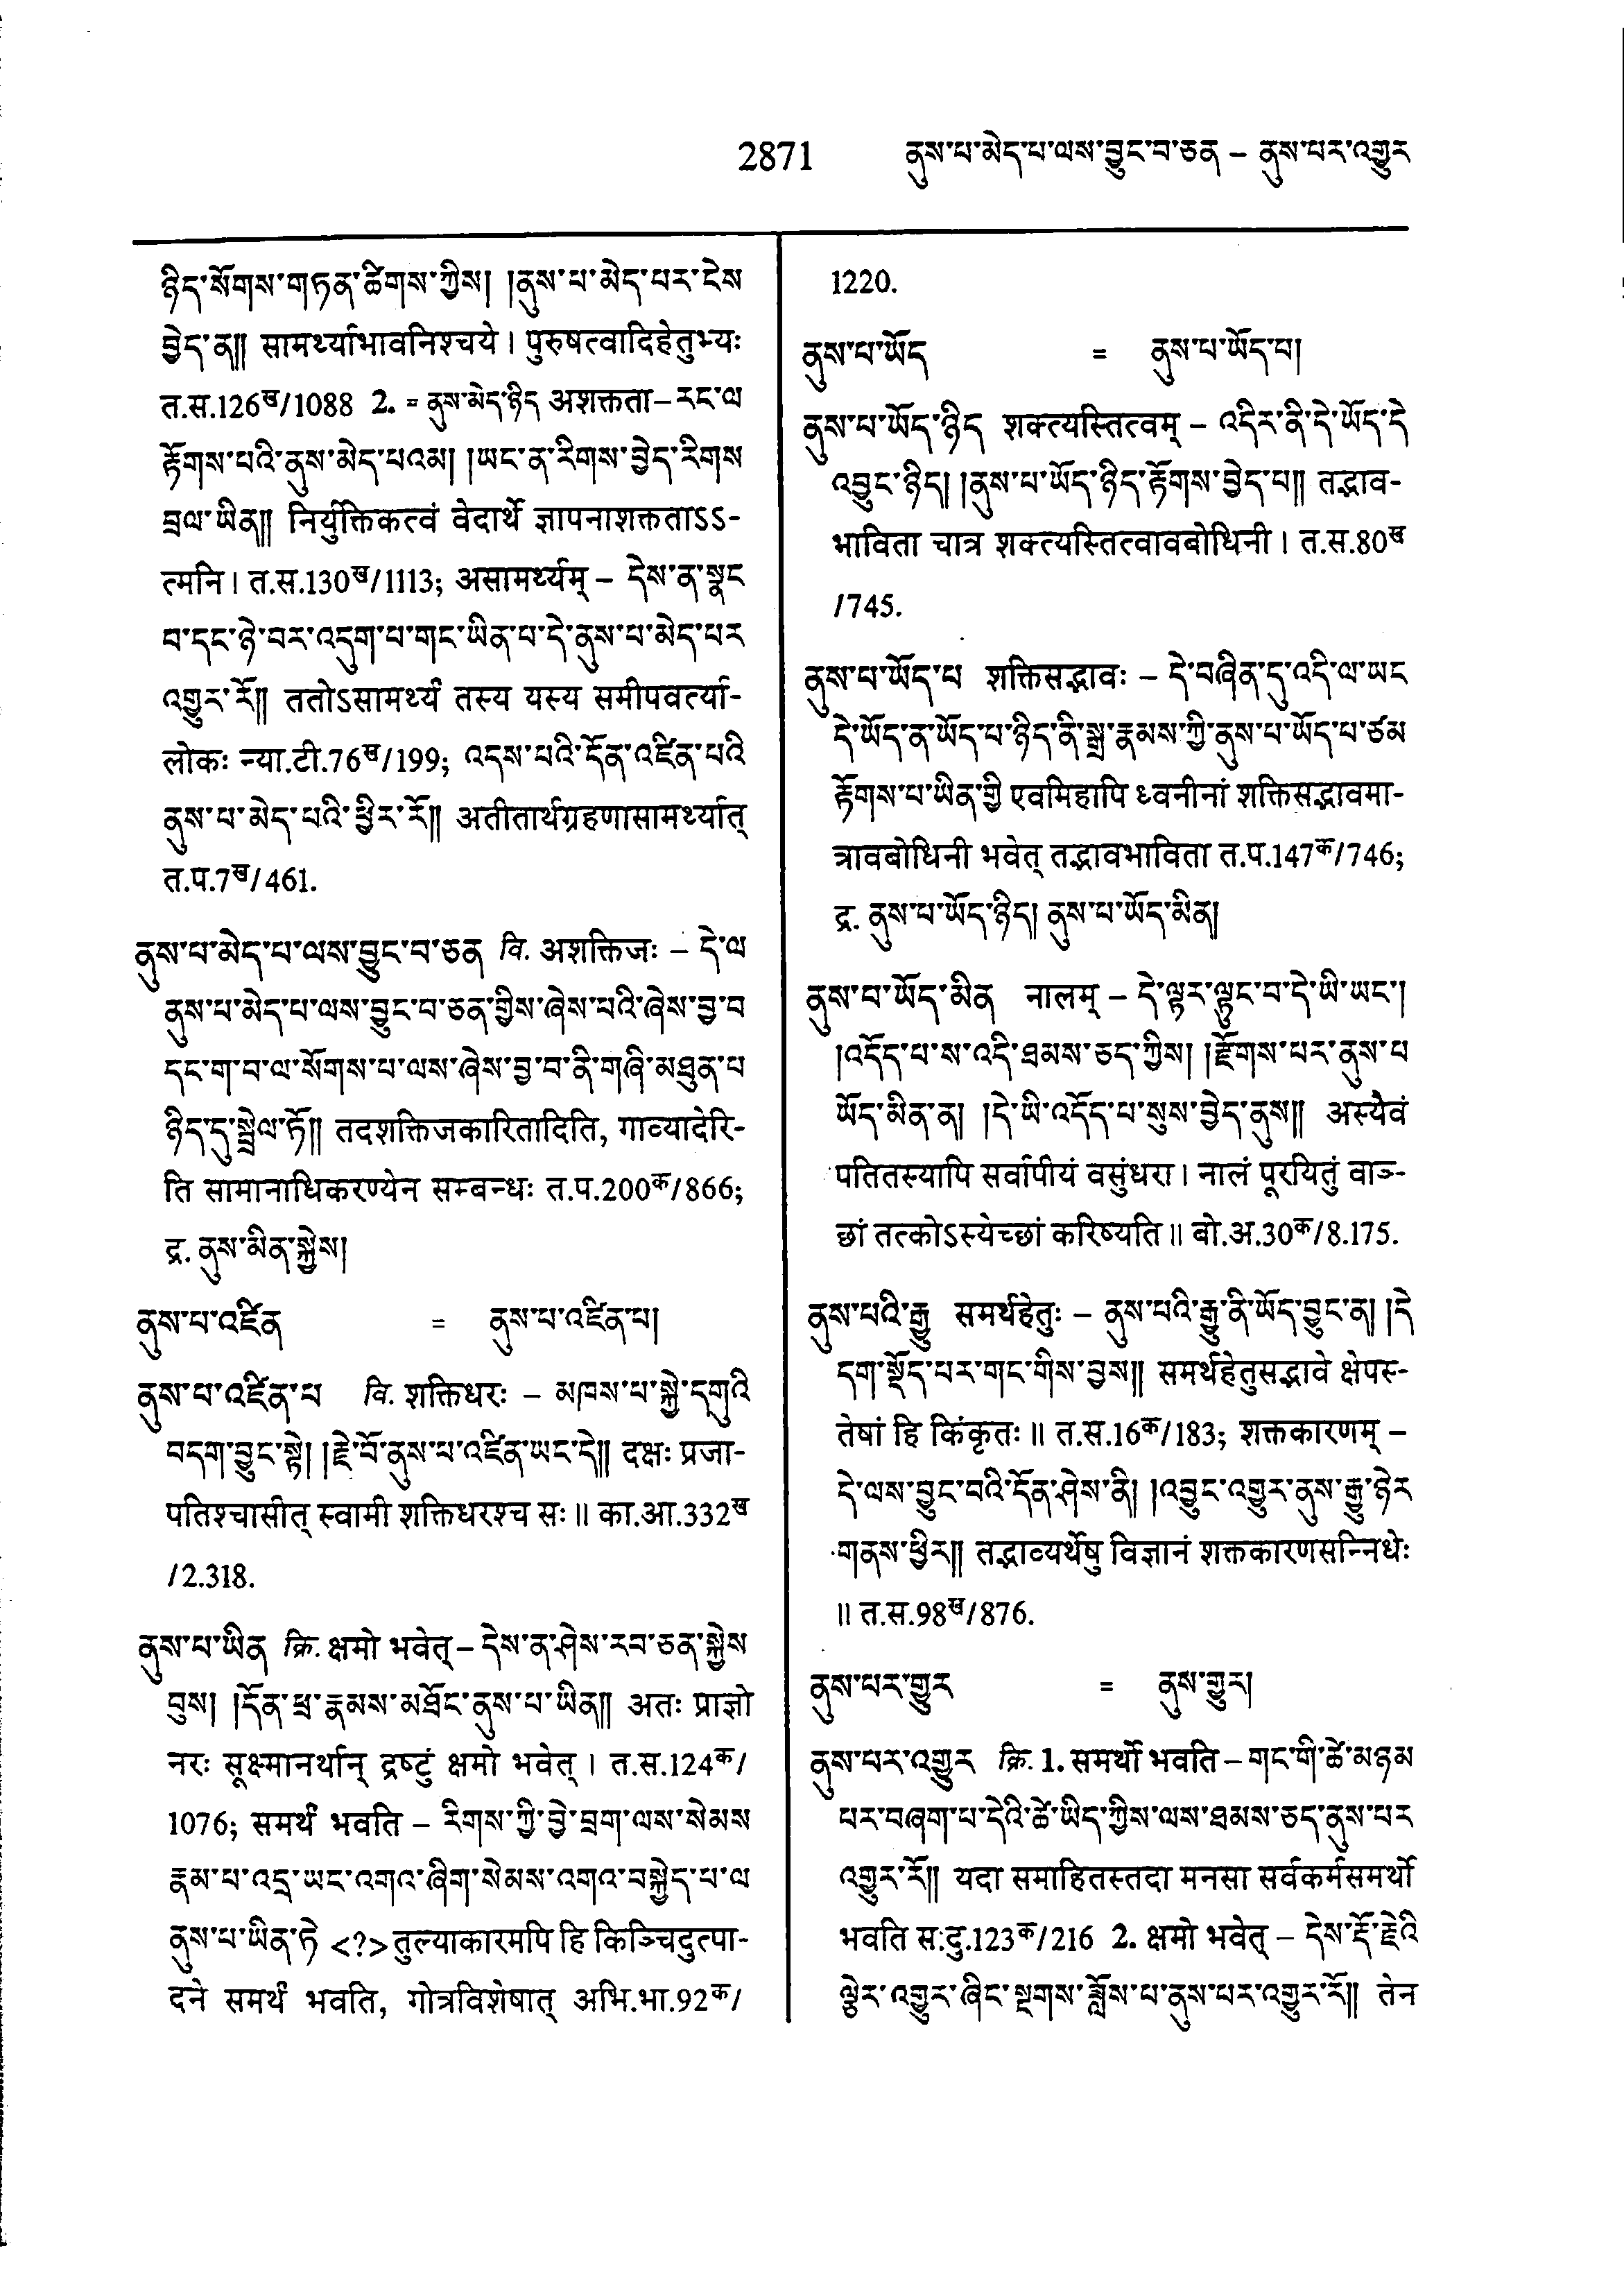 2871 ནུས་པ་མེད་པ་ལས་བྱུང་བ་ཅན – ནུས་པར་འགྱུར
ཉིད་སོགས་གཏན་ཚིགས་ཀྱིས། །ནུས་པ་མེད་པར་ངེས
བྱེད་ན།། सामर्थ्याभावनिश्चये। पुरुषत्वादिहेतुभ्यः
त.स.126ख/1088 2. = ནུས་མེད་ཉིད अशक्तता – རང་ལ
རྟོགས་པའི་ནུས་མེད་པའམ། །ཡང་ན་རིགས་བྱེད་རིགས
བྲལ་ཡིན།། निर्युक्तिकत्वं वेदार्थे ज्ञापनाशक्तताऽऽ-
त्मनि। त.स.130ख/1113; असामर्थ्यम् – དེས་ན་སྣང
བ་དང་ཉེ་བར་འདུག་པ་གང་ཡིན་པ་དེ་ནུས་པ་མེད་པར
འགྱུར་རོ།། ततोऽसामर्थ्यं तस्य यस्य समीपवर्त्या-
लोकः न्या.टी.76ख/199; འདས་པའི་དོན་འཛིན་པའི
ནུས་པ་མེད་པའི་ཕྱིར་རོ།། अतीतार्थग्रहणासामर्थ्यात्
त.प.7ख/461.
ནུས་པ་མེད་པ་ལས་བྱུང་བ་ཅན वि. अशक्तिजः – དེ་ལ
ནུས་པ་མེད་པ་ལས་བྱུང་བ་ཅན་གྱིས་ཞེས་པའི་ཞེས་བྱ་བ
དང་ག་བ་ལ་སོགས་པ་ལས་ཞེས་བྱ་བ་ནི་གཞི་མཐུན་པ
ཉིད་དུ་སྦྲེལ་ཏོ།། तदशक्तिजकारितादिति, गाव्यादेरि-
ति सामानाधिकरण्येन सम्बन्धः त.प.200क/866;
द्र. ནུས་མིན་སྐྱེས།
ནུས་པ་འཛིན = ནུས་པ་འཛིན་པ།
ནུས་པ་འཛིན་པ वि. शक्तिधरः – མཁས་པ་སྐྱེ་དགུའི
བདག་བྱུང་སྟེ། །རྗེ་བོ་ནུས་པ་འཛིན་ཡང་དེ།། दक्षः प्रजा-
पतिश्चासीत् स्वामी शक्तिधरश्च सः॥ का.आ.332ख
/2.318.
ནུས་པ་ཡིན क्रि. क्षमो भवेत् – དེས་ན་ཤེས་རབ་ཅན་སྐྱེས
བུས། །དོན་ཕྲ་རྣམས་མཐོང་ནུས་པ་ཡིན།། अतः प्राज्ञो
नरः सूक्ष्मानर्थान् द्रष्टुं क्षमो भवेत्। त.स.124क/
1076; समर्थं भवति – རིགས་ཀྱི་བྱེ་བྲག་ལས་སེམས
རྣམ་པ་འདྲ་ཡང་འགའ་ཞིག་སེམས་འགའ་བསྐྱེད་པ་ལ
ནུས་པ་ཡིན་ཏེ <?> तुल्याकारमपि हि किञ्चिदुत्पा-
दने समर्थं भवति, गोत्रविशेषात् अभि.भा.92क/
1220.
ནུས་པ་ཡོད = ནུས་པ་ཡོད་པ།
ནུས་པ་ཡོད་ཉིད शक्त्यस्तित्वम् – འདིར་ནི་དེ་ཡོད་དེ
འབྱུང་ཉིད། །ནུས་པ་ཡོད་ཉིད་རྟོགས་བྱེད་པ།། तद्भाव-
भाविता चात्र शक्त्यस्तित्वावबोधिनी। त.स.80ख
/745.
ནུས་པ་ཡོད་པ शक्तिसद्भावः – དེ་བཞིན་དུ་འདི་ལ་ཡང
དེ་ཡོད་ན་ཡོད་པ་ཉིད་ནི་སྒྲ་རྣམས་ཀྱི་ནུས་པ་ཡོད་པ་ཙམ
རྟོགས་པ་ཡིན་གྱི एवमिहापि ध्वनीनां शक्तिसद्भावमा-
त्रावबोधिनी भवेत् तद्भावभाविता त.प.147क/746;
द्र. ནུས་པ་ཡོད་ཉིད། ནུས་པ་ཡོད་མིན།
ནུས་པ་ཡོད་མིན नालम् – དེ་ལྟར་ལྟུང་བ་དེ་ཡི་ཡང་།
།འདོད་པ་ས་འདི་ཐམས་ཅད་ཀྱིས། །རྫོགས་པར་ནུས་པ
ཡོད་མིན་ན། །དེ་ཡི་འདོད་པ་སུས་བྱེད་ནུས།། अस्यैवं
पतितस्यापि सर्वापीयं वसुंधरा। नालं पूरयितुं वाञ्-
छां तत्कोऽस्येच्छां करिष्यति॥ बो.अ.30क/8.175.
ནུས་པའི་རྒྱུ समर्थहेतुः – ནུས་པའི་རྒྱུ་ནི་ཡོད་བྱུང་ན། །དེ
དག་སྡོད་པར་གང་གིས་བྱས།། समर्थहेतुसद्भावे क्षेपस्-
तेषां हि किंकृतः॥ त.स.16क/183; शक्तकारणम् –
དེ་ལས་བྱུང་བའི་དོན་ཤེས་ནི། །འབྱུང་འགྱུར་ནུས་རྒྱུ་ཉེར
གནས་ཕྱིར།། तद्भाव्यर्थेषु विज्ञानं शक्तकारणसन्निधेः
॥ त.स.98ख/876.
ནུས་པར་གྱུར = ནུས་གྱུར།
ནུས་པར་འགྱུར क्रि. 1. समर्थो भवति – གང་གི་ཚེ་མཉམ
པར་བཞག་པ་དེའི་ཚེ་ཡིད་ཀྱིས་ལས་ཐམས་ཅད་ནུས་པར
འགྱུར་རོ།། यदा समाहितस्तदा मनसा सर्वकर्मसमर्थो
भवति स.दु.123क/216 2. क्षमो भवेत् – དེས་རྡོ་རྗེའི
ལྕེར་འགྱུར་ཞིང་སྔགས་ཟློས་པ་ནུས་པར་འགྱུར་རོ།། तेन